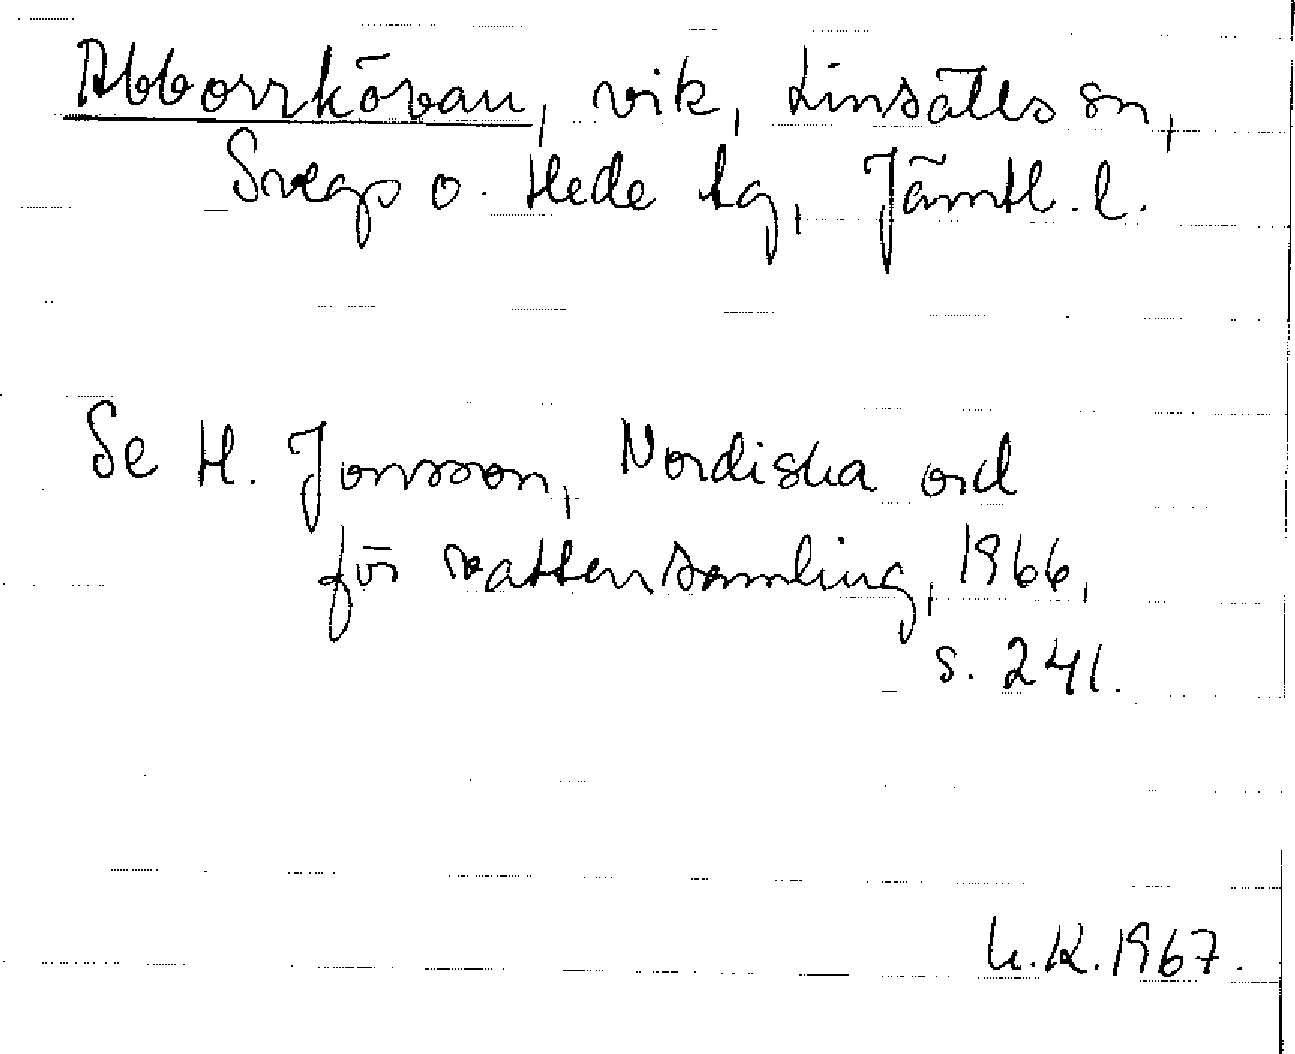 Abborrkövan, vik, Linsälls sn,
Svegs o. Hede tg, Jämtl. l.
Se H. Jonsson, Nordiska ord
för vattensamling, 1966,
s. 241.
U.K. 1967.